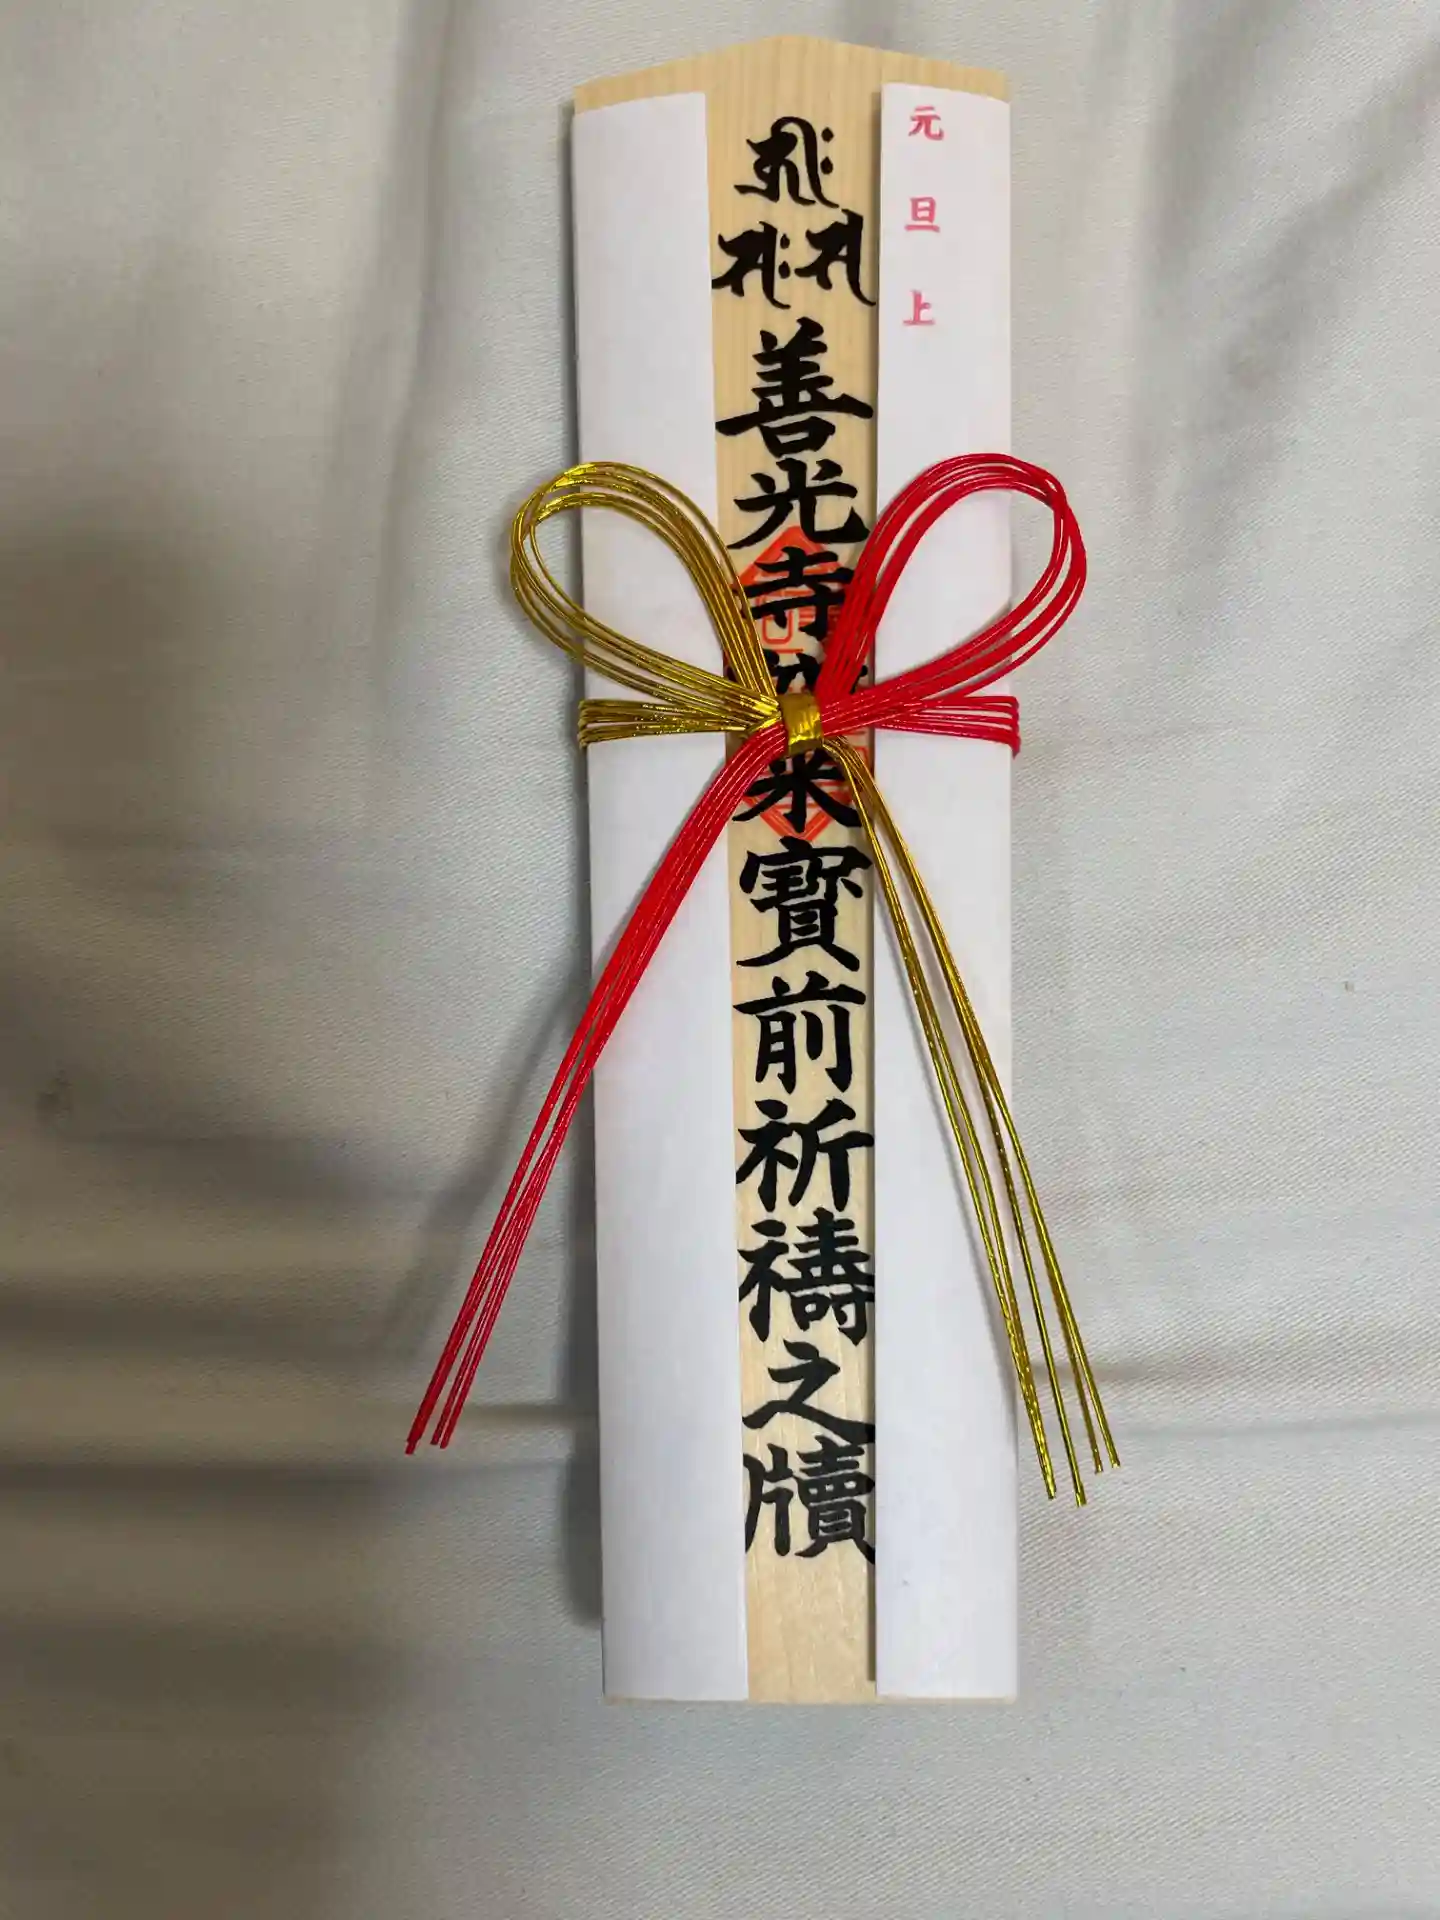 元旦上
𑖮𑖿𑖨𑖱𑖾
𑖭𑖾 𑖭
善光寺如来寶前祈禱之牘